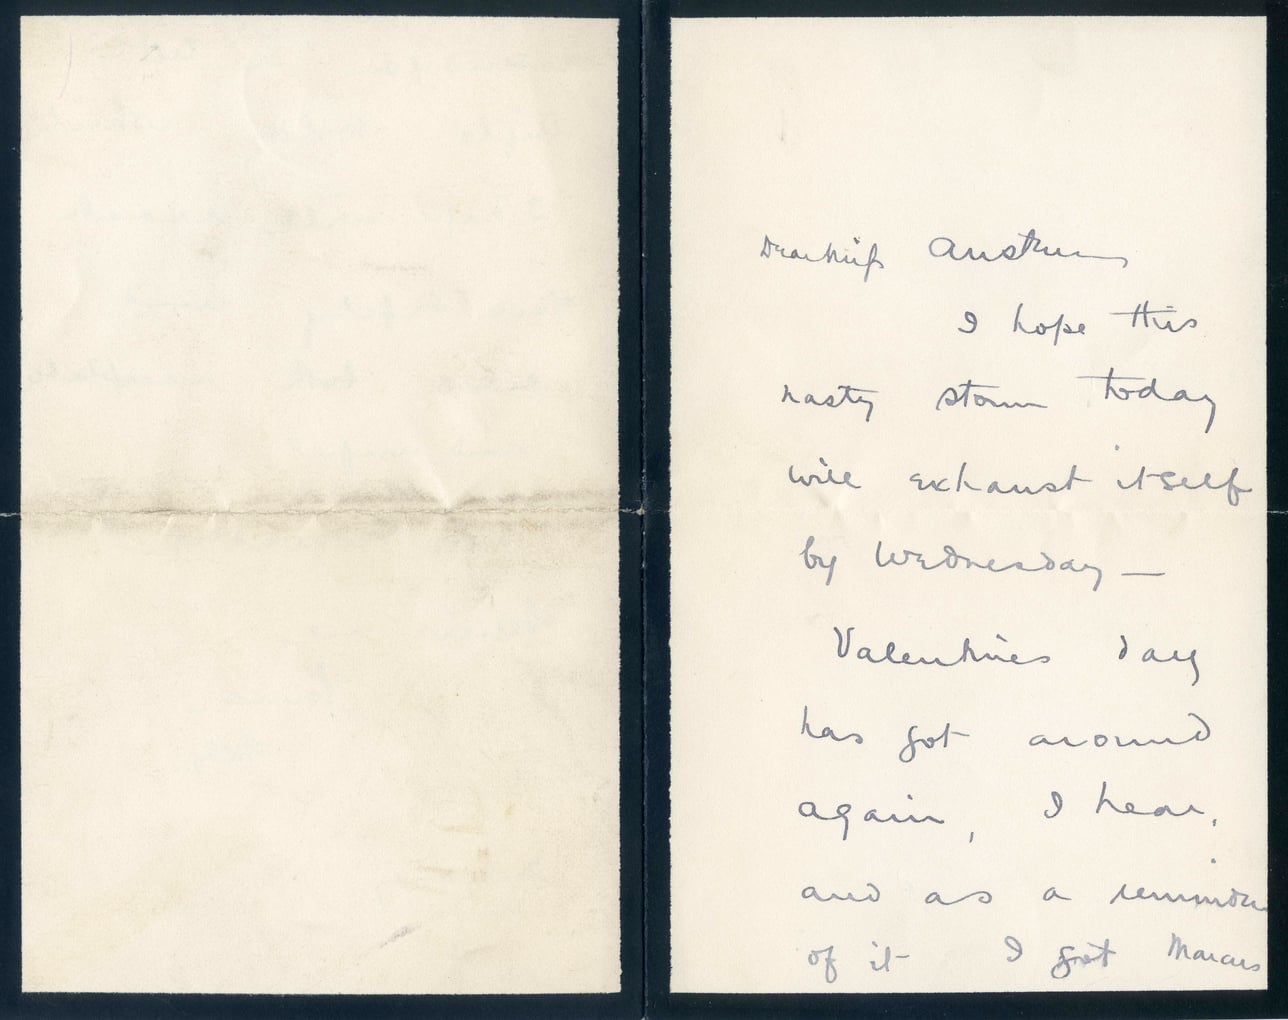 Dear Miss Austrian
I hope this
nasty storm today
will exhaust itself
by Wednesday —
Valentines day
has got around
again, I hear,
and as a reminder
of it I got Marcus